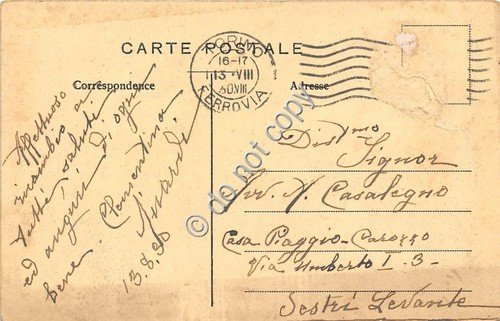 CARTE POSTALE
Correspondence
Adresse
TORINO
16-17
13·VIII
30VIII
FERROVIA
Affettuoso
ricambio a
tutti saluti
ed auguri d'ogni
bene.
Clementina
13.8.30
Dist.mo
Signor
Avv. A. Casalegno
Casa Piaggio-Carozzo
Via Umberto I-3-
Sestri Levante
do not copy